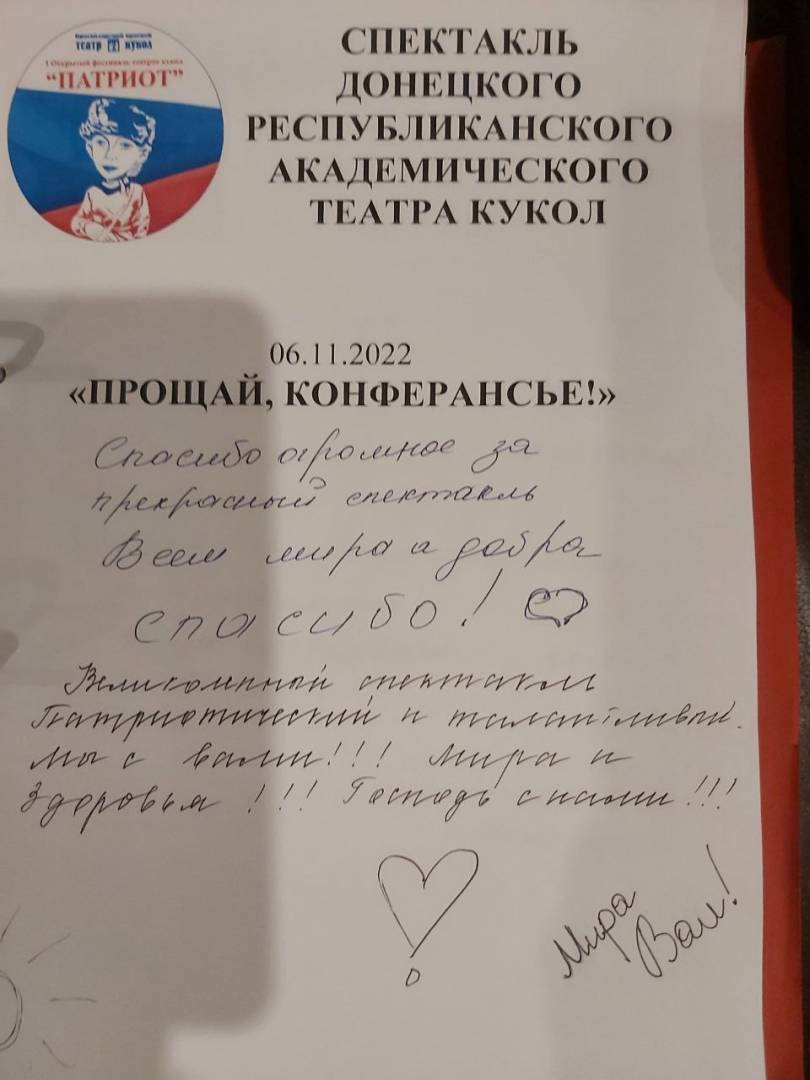 театр кукол
I Открытый фестиваль театров кукол
"ПАТРИОТ"
СПЕКТАКЛЬ
ДОНЕЦКОГО
РЕСПУБЛИКАНСКОГО
АКАДЕМИЧЕСКОГО
ТЕАТРА КУКОЛ
06.11.2022
«ПРОЩАЙ, КОНФЕРАНСЬЕ!»
Спасибо огромное за
прекрасный спектакль
Всем мира и добра
спасибо!
Великолепный спектакль
Патриотический и талантливый.
Мы с вами!!! Мира и
Здоровья!!! Господь с нами!!!
Мира
Вам!